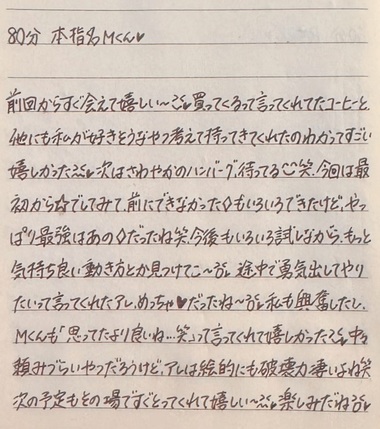 80分 本指名Mくん♥
前回からすぐ会えて嬉しい〜 買ってくるって言ってくれてたコーヒーと、
他にも私が好きそうなやつ考えて持ってきてくれたのわかってすごい
嬉しかった 次はさわやかのハンバーグ、待ってる 笑 今回は最
初から☆でしてみて、前にできなかった◇もいろいろできたけど、やっ
ぱり最強はあの◇だったね笑 今後もいろいろ試しながら、もっと
気持ち良い動き方とか見つけてこ〜 途中で勇気出してやり
たいって言ってくれたアレ、めっちゃ♥だったね〜 私も興奮したし、
Mくんも「思ってたより良いね…笑」って言ってくれて嬉しかった 中々
頼みづらいやつだろうけど、アレは絵的にも破壊力凄いよね笑
次の予定もその場ですぐとってくれて嬉しい〜 楽しみだね